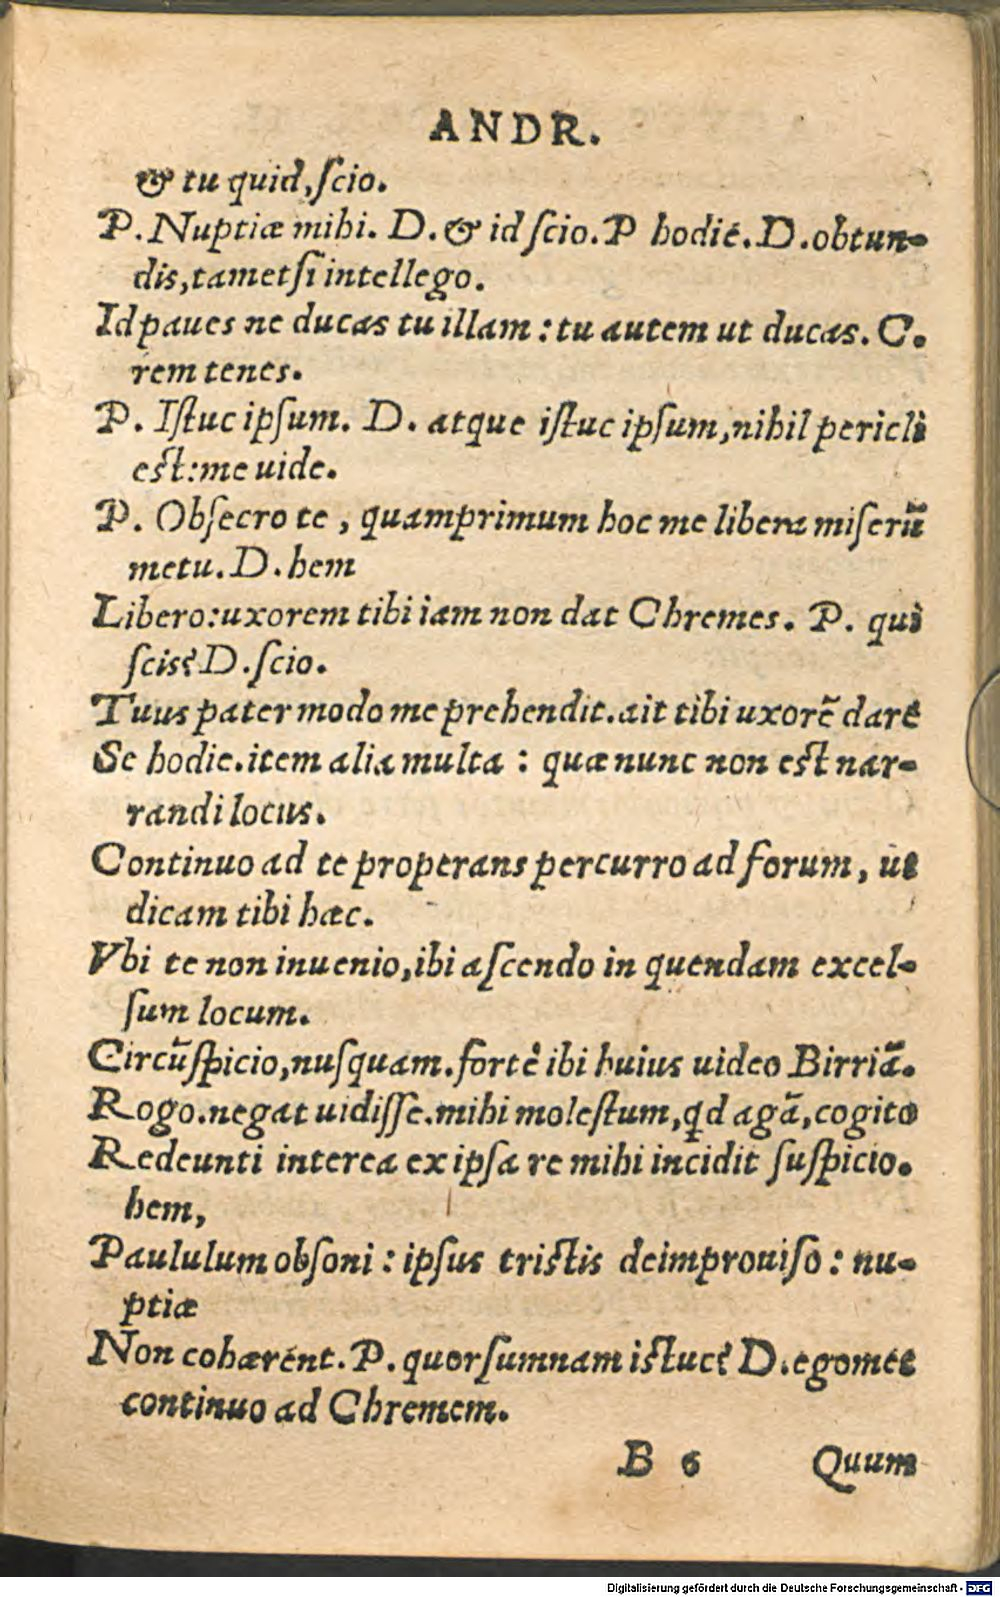 ANDR.
& tu quid, ſcio.
P. Nuptiæ mihi. D. & id ſcio. P hodie. D. obtun-
dis, tametſi intellego.
Id paues ne ducas tu illam: tu autem ut ducas. C.
rem tenes.
P. Iſtuc ipſum. D. atque iſtuc ipſum, nihil pericli
eſt: me uide.
P. Obſecro te, quamprimum hoc me libera miſerũ
metu. D. hem
Libero: uxorem tibi iam non dat Chremes. P. qui
ſcis? D. ſcio.
Tuus pater modo me prehendit. ait tibi uxorẽ dare
Se hodie. item alia multa: quæ nunc non eſt nar-
randi locus.
Continuo ad te properans percurro ad forum, ut
dicam tibi hæc.
Vbi te non inuenio, ibi aſcendo in quendam excel-
ſum locum.
Circũſpicio, nuſquam. fortè ibi huius uideo Birriã.
Rogo. negat uidiſſe. mihi moleſtum, qd agã, cogito
Redeunti interea ex ipſa re mihi incidit ſuſpicio.
hem,
Paululum obſoni: ipſus triſtis deimprouiſo: nu-
ptiæ
Non cohærent. P. quorſumnam iſtuc? D. egomet
continuo ad Chremem.
B 6 Quum
Digitalisierung gefördert durch die Deutsche Forschungsgemeinschaft - DFG